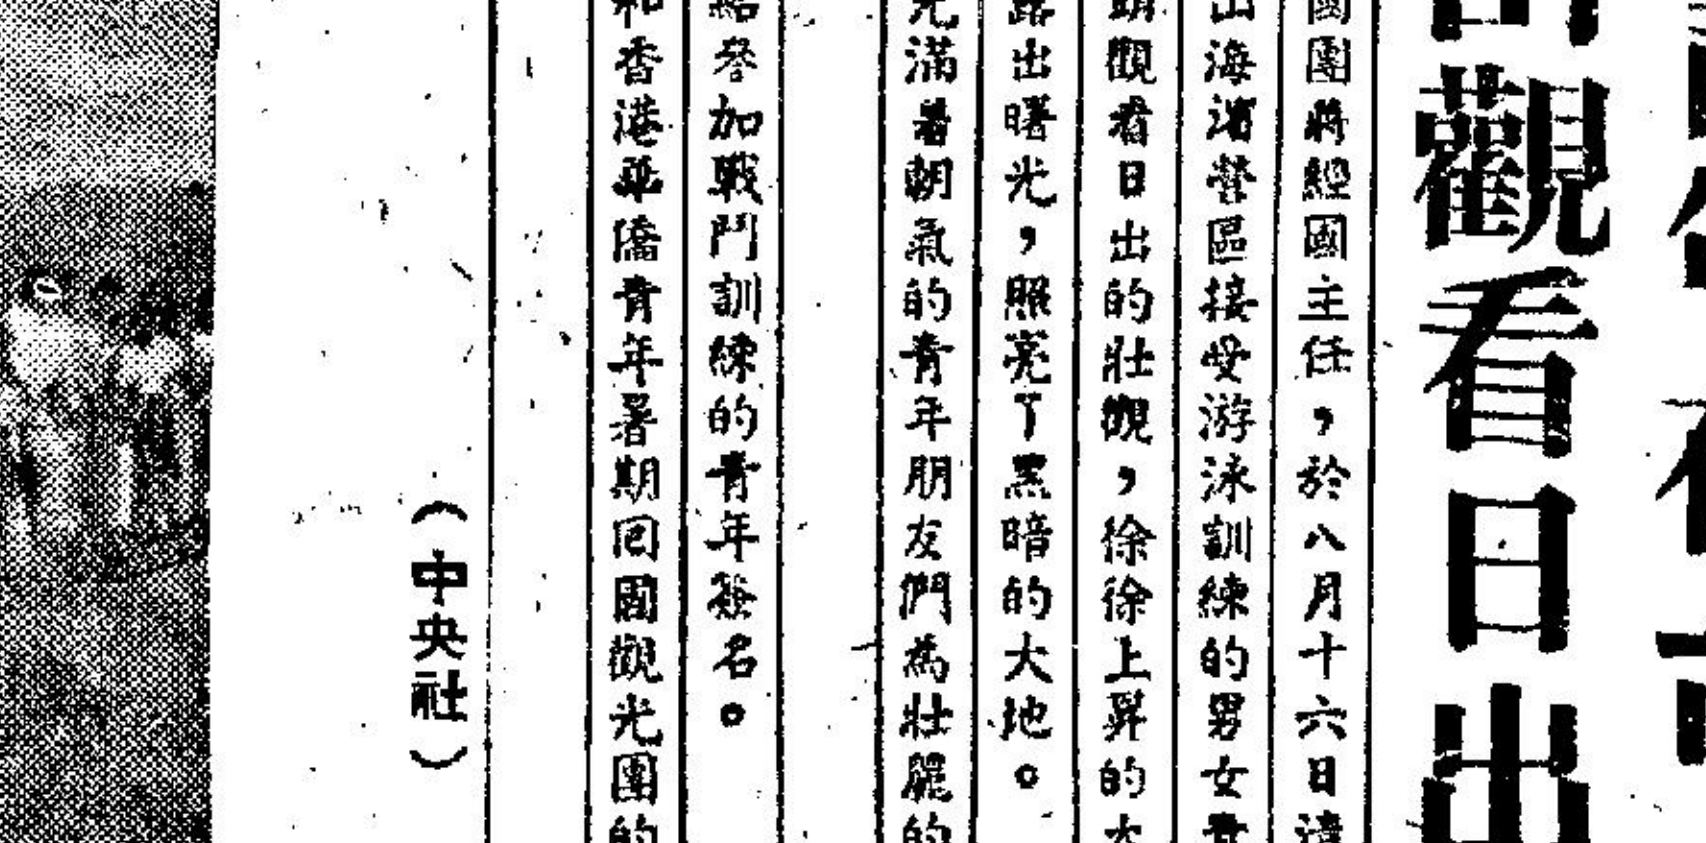 觀看日出
國團蔣經國主任，於八月十六日清
出海濱營區接受游泳訓練的男女青
頭觀看日出的壯觀，徐徐上昇的太
露出曙光，照亮了黑暗的大地。
充滿着朝氣的青年朋友們為壯麗的
給參加戰鬥訓練的青年簽名。
和香港華僑青年暑期回國觀光團的
（中央社）